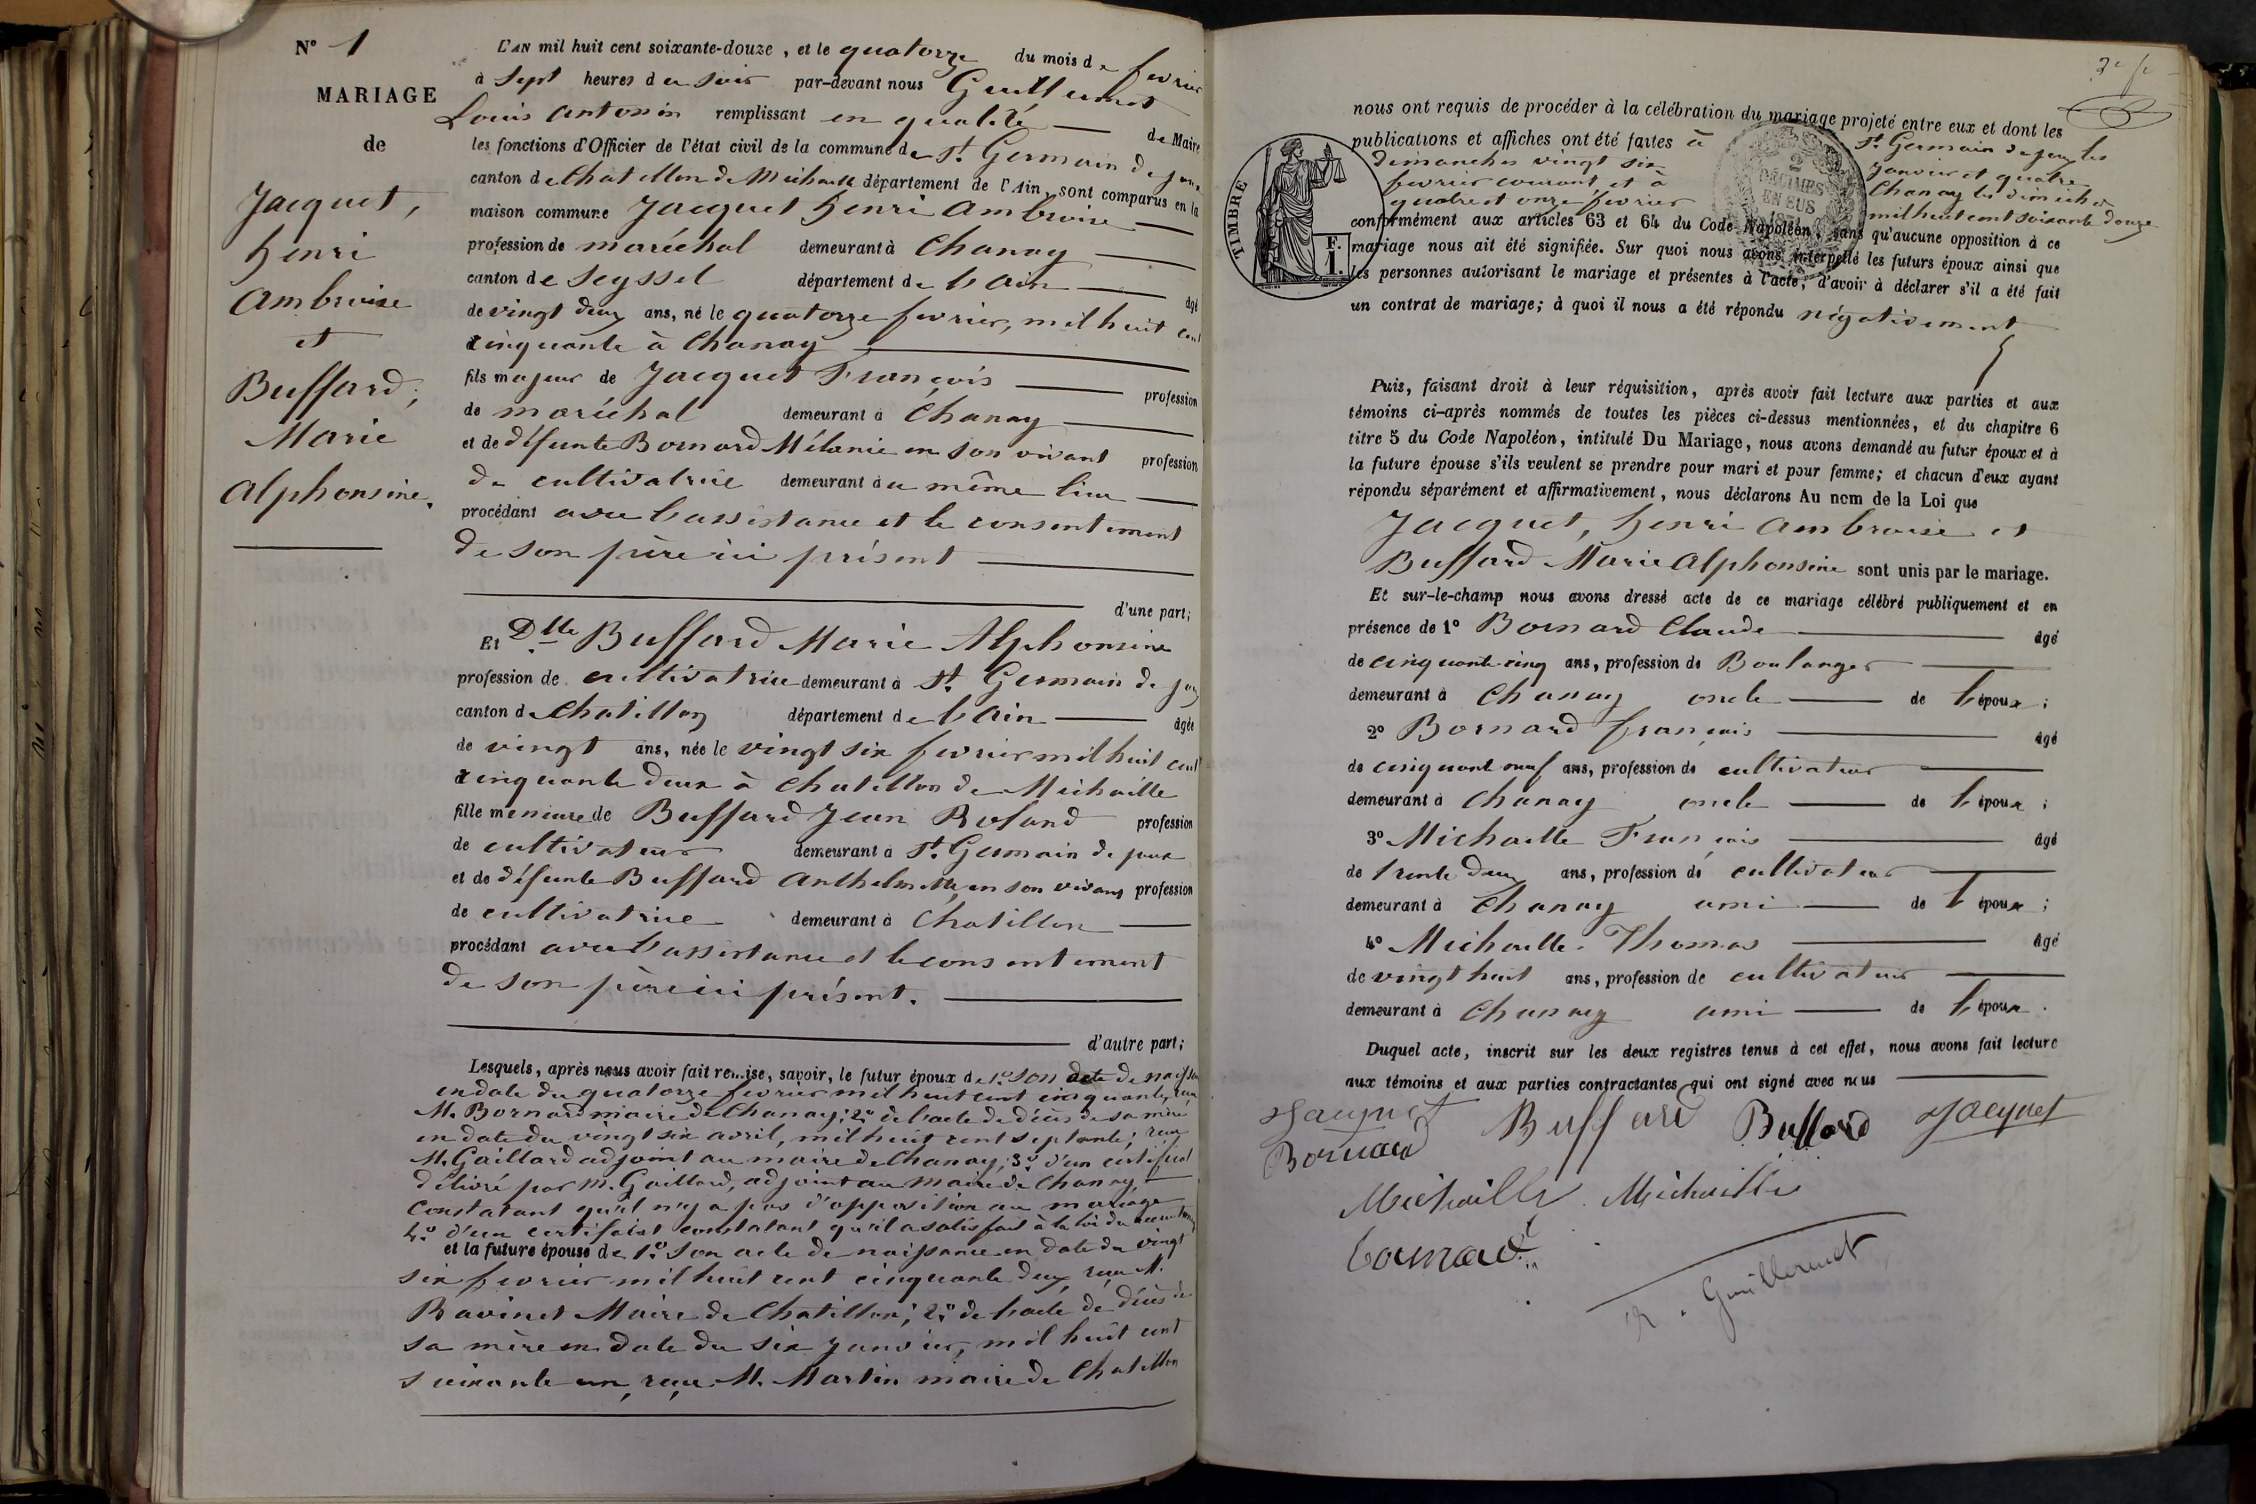 N° 1
MARIAGE
de
Jacquet,
henri
Ambroise
et
Buffard,
Marie
Alphonsine.
L'AN mil huit cent soixante-douze, et le quatorze du mois de fevrier
à sept heures du soir par-devant nous Guillermet
Louis Antonin remplissant en qualité de Maire
les fonctions d'Officier de l'état civil de la commune de St. Germain de Joux
canton de Chatillon de Michaille département de l'Ain, sont comparus en la
maison commune Jacquet henri Ambroise
profession de maréchal demeurant à Chanay
canton de Seyssel département de l'Ain âgé
de vingt deux ans, né le quatorze fevrier, mil huit cent
cinquante à Chanay
fils majeur de Jacquet François profession
de maréchal demeurant à Chanay
et de défunte Bornard Mélanie en son vivant profession
de cultivatrice demeurant au même lieu
procédant avec l'assistance et le consentement
de son père ici présent
d'une part;
Et Dlle Buffard Marie Alphonsine
profession de cultivatrice demeurant à St. Germain de Joux
canton de Chatillon département de l'Ain âgée
de vingt ans, née le vingt six fevrier mil huit cent
cinquante deux à Chatillon de Michaille
fille mineure de Buffard Jean Roland profession
de cultivateur demeurant à St. Germain de joux
et de défunte Buffard Anthelmette, en son vivant profession
de cultivatrice demeurant à Chatillon
procédant avec l'assistance et le consentement
de son père ici présent.
d'autre part;
Lesquels, après nous avoir fait remise, savoir, le futur époux de 1.° son acte de naissance
en date du quatorze fevrier mil huit cent cinquante, reçu
M. Bornard maire de Chanay; 2.° de l'acte de décès de sa mère
en date du vingt six avril, mil huit cent septante; reçu
M. Gaillard adjoint au maire de Chanay; 3.° d'un certificat
délivré par M. Gaillard, adjoint au maire de Chanay,
constatant qu'il n'y a pas d'opposition au mariage
4.° d'un certificat constatant qu'il a satisfait à la loi du recrutement
et la future épouse de 1.° son acte de naissance en date du vingt
six fevrier mil huit cent cinquante deux, reçu M.
Ravinet Maire de Chatillon; 2.° de l'acte de décès de
sa mère en date du six janvier, mil huit cent
soixante un, reçu M. Martin maire de Chatillon
nous ont requis de procéder à la célébration du mariage projeté entre eux et dont les
publications et affiches ont été faites à St. Germain de joux les
demanches vingt six janvier et quatre
fevrier courant et à Chanay les dimanches
quatre et onze fevrier mil huit cent soixante douze
TIMBRE
F.
1.
2
DÉCIMES
EN SUS
1871
conformément aux articles 63 et 64 du Code Napoléon, sans qu'aucune opposition à ce
mariage nous ait été signifiée. Sur quoi nous avons interpellé les futurs époux ainsi que
les personnes autorisant le mariage et présentes à l'acte, d'avoir à déclarer s'il a été fait
un contrat de mariage; à quoi il nous a été répondu négativement
Puis, faisant droit à leur réquisition, après avoir fait lecture aux parties et aux
témoins ci-après nommés de toutes les pièces ci-dessus mentionnées, et du chapitre 6
titre 5 du Code Napoléon, intitulé Du Mariage, nous avons demandé au futur époux et à
la future épouse s'ils veulent se prendre pour mari et pour femme; et chacun d'eux ayant
répondu séparément et affirmativement, nous déclarons Au nom de la Loi que
Jacquet, henri Ambroise et
Buffard Marie Alphonsine sont unis par le mariage.
Et sur-le-champ nous avons dressé acte de ce mariage célébré publiquement et en
présence de 1° Bornard Claude âgé
de cinquante cinq ans, profession de Boulanger
demeurant à Chanay oncle de l'époux;
2° Bornard françois âgé
de cinquante neuf ans, profession de cultivateur
demeurant à Chanay oncle de l'époux;
3° Michaille François âgé
de trente deux ans, profession de cultivateur
demeurant à Chanay ami de l'époux;
4° Michaille Thomas âgé
de vingt huit ans, profession de cultivateur
demeurant à Chanay ami de l'époux.
Duquel acte, inscrit sur les deux registres tenus à cet effet, nous avons fait lecture
aux témoins et aux parties contractantes qui ont signé avec nous
Jacquet Buffard Buffard Jacquet
Bornard
Michaille Michaille
Bornard
Guillermet